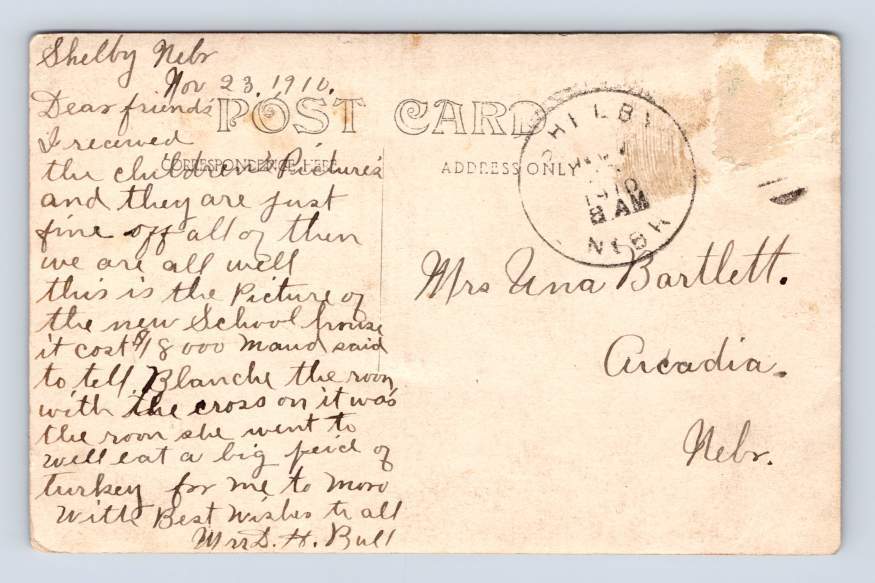 Shelby Nebr
Nov 23, 1910.
Dear friends
I received
the children's Picture's
and they are just
fine off all of them
we are all well
this is the Picture of
the new School house
it cost $18000 Maud said
to tell Blanche the room
with the cross on it was
the room she went to
well eat a big peid of
turkey for me to moro
with Best Wishes to all
Mrs S. H. Bull
POST CARD
CORRESPONDENCE HERE
ADDRESS ONLY
SHELBY
NOV
1910
8 AM
NEBR
Mrs Una Bartlett.
Arcadia.
Nebr.